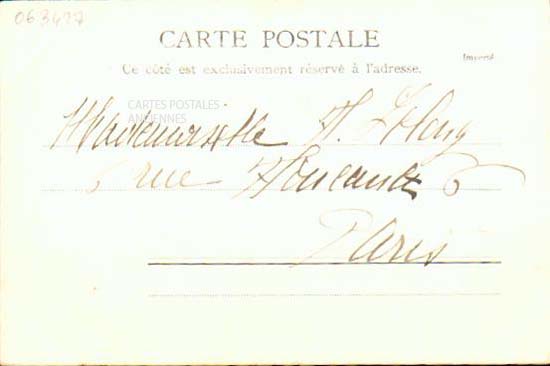 063417
CARTE POSTALE
Ce côté est exclusivement réservé à l'adresse.
CARTES POSTALES -
ANCIENNES
Mademoiselle H.
rue
Paris